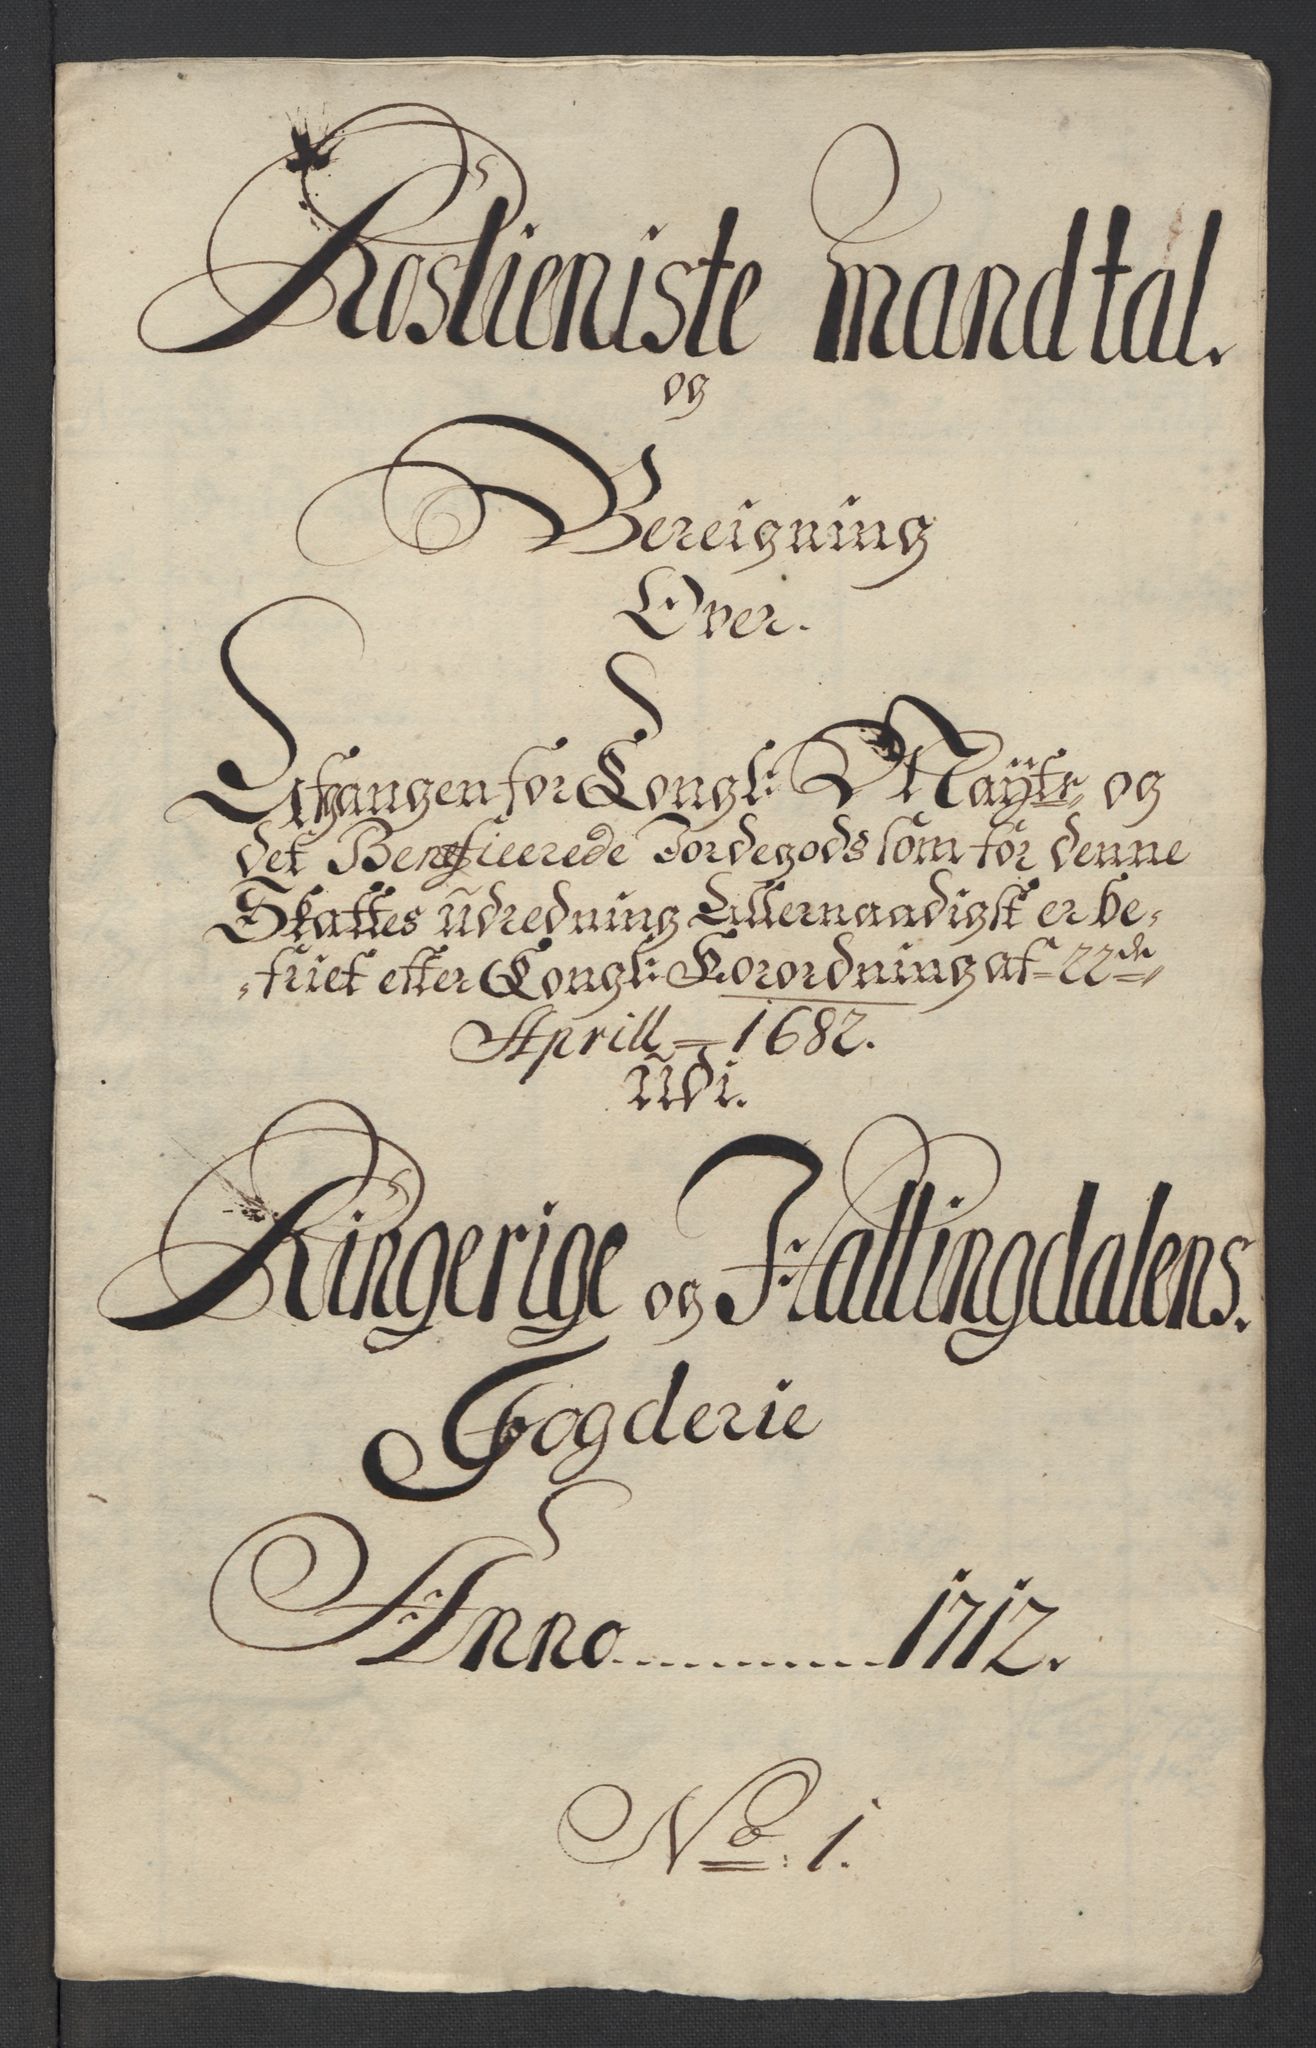 Rostieniste mandtal.
og
Bereigning
Over.
Afgangen for Kongl: Mayts og
det Beneficerede Jordegods som for denne
Skattes ûdredning Allernaadigst er be-
friet efter Kongl: Forordning af 22de
Aprill 1682.
ûdi.
Ringerige og Hallingdalens.
Fogderie
Anno 1712.
No: 1.